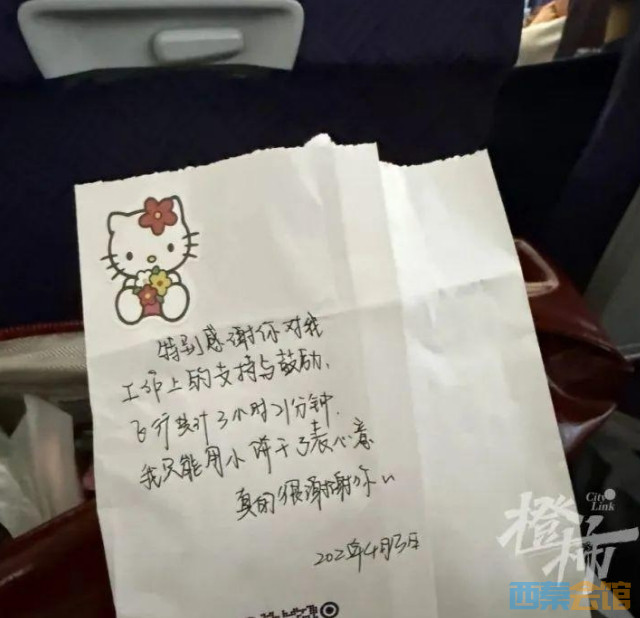 特别感谢你对我
工作上的支持与鼓励,
飞行共计3小时21分钟.
我只能用小饼干了表心意
真的很谢谢你
2023年4月3日
City
Link
橙柿
西秦会馆